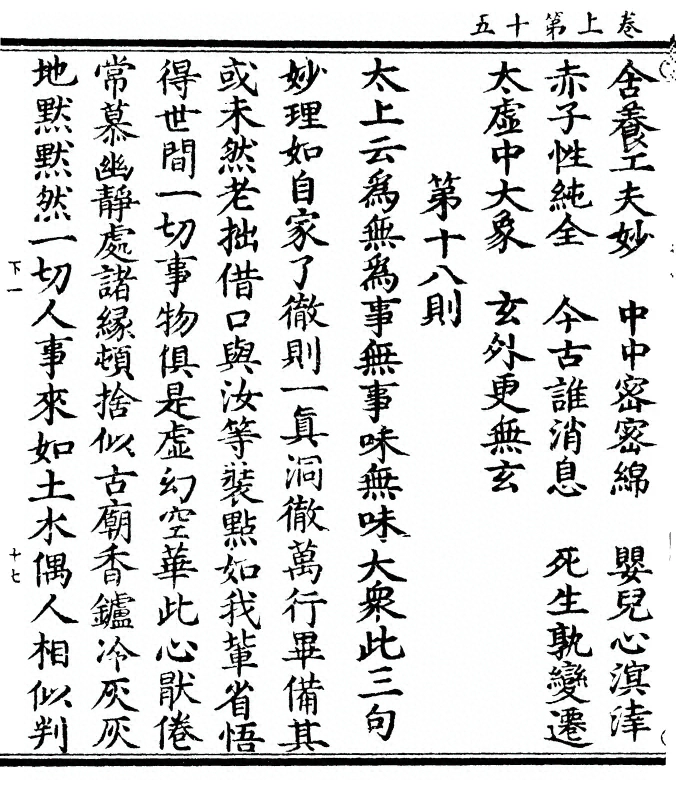 卷上第十五
含養工夫妙　中中密密綿　嬰兒心溟涬
赤子性純全　今古誰消息　死生孰變遷
太虛中大象　玄外更無玄
第十八則
太上云爲無爲事無事味無味大衆此三句
妙理如自家了徹則一眞洞徹萬行畢備其
或未然老拙借口與汝等裝點如我輩省悟
得世間一切事物俱是虛幻空華此心厭倦
常慕幽靜處諸緣頓捨似古廟香鑪冷灰灰
地默默然一切人事來如土木偶人相似判
下一
十七